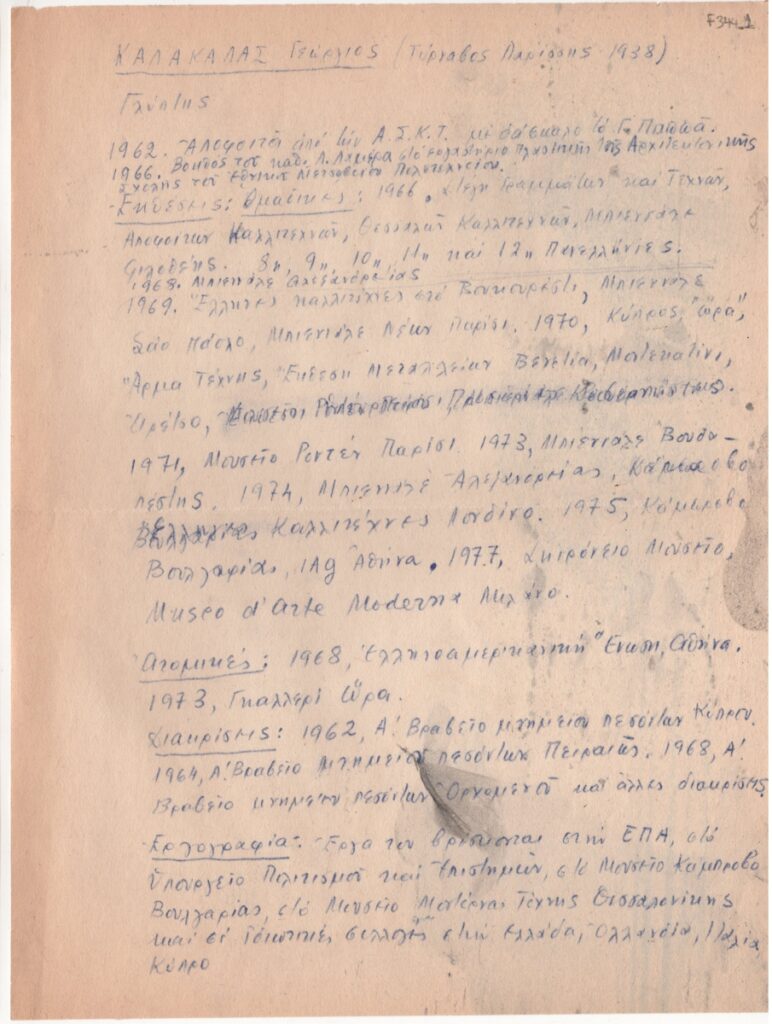 F344_1
ΚΑΛΑΚΑΛΑΣ Γεώργιος (Τύρναβος Λαρίσης 1938)
Γλύπτης
1962. Ἀποφοιτᾶ ἀπό τήν Α.Σ.Κ.Τ. μέ δάσκαλο τό Γ. Παππᾶ.
1966. Βοηθός τοῦ καθ. Λ. Λαμέρα στό ἐργαστήριο Πλαστικῆς τῆς Ἀρχιτεκτονικῆς
Σχολῆς τοῦ Ἐθνικοῦ Μετσοβείου Πολυτεχνείου.
Ἐκθέσεις: Ὁμαδικές: 1966, Στέγη Γραμμάτων καί Τεχνῶν,
Ἀποφοίτων Καλλιτεχνῶν, Θεσσαλῶν Καλλιτεχνῶν, Μπιεννάλε
Φιλοθέης. 8η, 9η, 10η, 11η καί 12η Πανελλήνιες.
1968. Μπιεννάλε Ἀλεξανδρείας
1969. Ἕλληνες καλλιτέχνες στό Βουκουρέστι, Μπιεννάλε
Σάο Πάολο, Μπιεννάλε Νέων Παρίσι. 1970, Κύπρος, "Ὥρα",
Ἅρμα Τέχνης, Ἔκθεση Μεταλλείων Βενετία, Μοντεκατίνι,
1971, Μουσεῖο Ροντέν Παρίσι. 1973, Μπιεννάλε Βουδα-
πέστης. 1974, Μπιεννάλε Ἀλεξανδρείας, Κάμπροβο
Βουλγαρίας Καλλιτέχνες Λονδίνο. 1975, Κάμπροβο
Βουλγαρίας, ΙΑg Ἀθήνα. 1977, Σκιρόνειο Μουσεῖο,
Museo d'Arte Moderna Μιλάνο.
Ἀτομικές: 1968, Ἑλληνοαμερικανική Ἕνωση, Ἀθήνα.
1973, Γκαλλερί Ὥρα.
Διακρίσεις: 1962, Α! Βραβεῖο μνημείου πεσόντων Κύπρου.
1964, Α! Βραβεῖο μνημείου πεσόντων Πειραιῶς. 1968, Α!
Βραβεῖο μνημείου πεσόντων Ὀρχομενοῦ καί ἄλλες διακρίσεις.
Ἐργογραφία: Ἔργα του βρίσκονται στήν ΕΠΑ, στό
Ὑπουργεῖο Πολιτισμοῦ καί Ἐπιστημῶν, στό Μουσεῖο Κάμπροβο
Βουλγαρίας, στό Μουσεῖο Μοντέρνας Τέχνης Θεσσαλονίκης
καί σέ ἰδιωτικές συλλογές στήν Ἑλλάδα, Ὁλλανδία, Ἰταλία,
Κύπρο